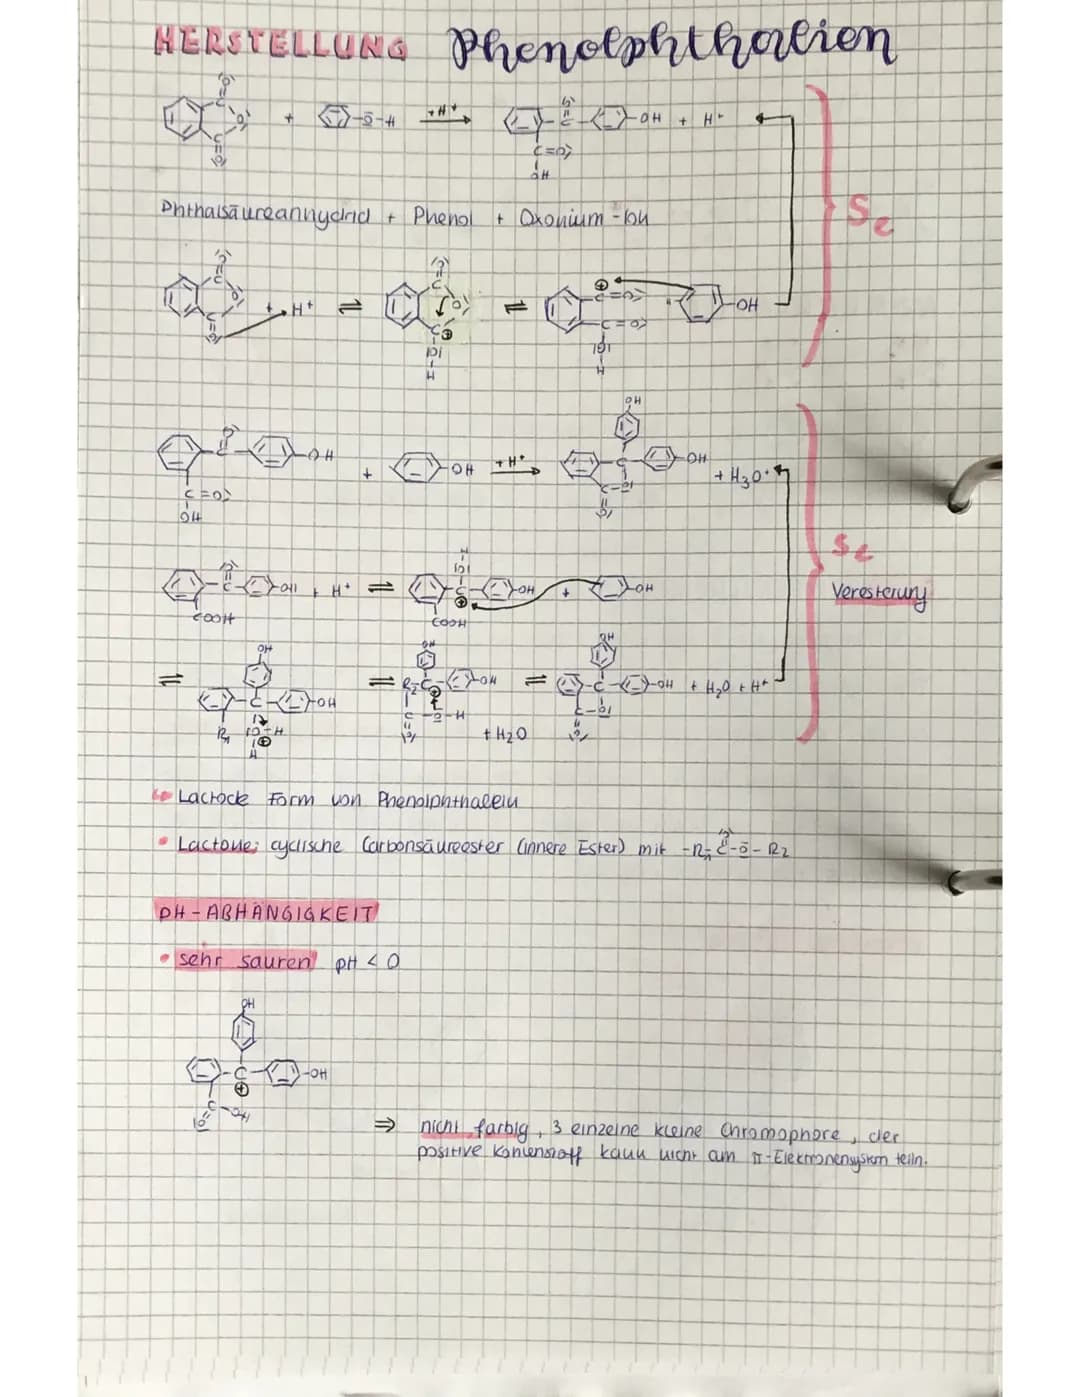 HERSTELLUNG Phenolphthalien
+ -O-H +H⁺ -OH + H⁺
C=O
OH
Phthalsäureanhydrid + Phenol + Oxonium-Ion
Se
+ H⁺ ⇌ ⇌ -OH
-OH + -OH +H⁺ -OH + H₃O⁺
C=O
OH
Se
Veresterung
-OH + H⁺ ⇌ -OH + -OH
COOH COOH
⇌ -OH ⇌ R₂-C -OH ⇌ -OH + H₂O + H⁺
R₁ + H₂O
↳ Lactocle Form von Phenolphthalein
• Lactone: cyclische Carbonsäureester (innere Ester) mit -R₁-C-O-R₂
PH-ABHÄNGIGKEIT
• sehr sauren pH < 0
OH
-C- -OH
⇒ nicht farbig, 3 einzelne kleine Chromophore, der
positive Kohlenstoff kann nicht am π-Elektronensystem teiln.